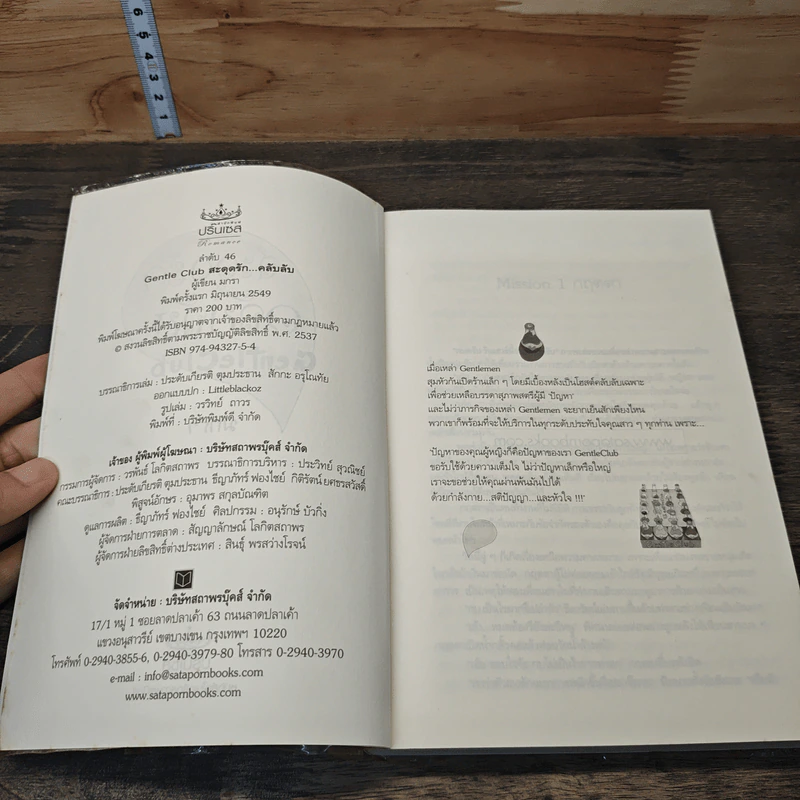 6 5 4 3 2 1
ปริ๊นเซส
Romance
ลำดับ 46
Gentle Club สะดุดรัก...คลับลับ
ผู้เขียน มกรา
พิมพ์ครั้งแรก มิถุนายน 2549
ราคา 200 บาท
พิมพ์โฆษณาครั้งนี้ได้รับอนุญาตจากเจ้าของลิขสิทธิ์ตามกฎหมายแล้ว
© สงวนลิขสิทธิ์ตามพระราชบัญญัติลิขสิทธิ์ พ.ศ. 2537
ISBN 974-94327-5-4
บรรณาธิการเล่ม : ประดับเกียรติ ตุมประธาน สักกะ อรุโณทัย
ออกแบบปก : Littleblackoz
รูปเล่ม : วรวิทย์ ถาวร
พิมพ์ที่ : บริษัทพิมพ์ดี จำกัด
เจ้าของ ผู้พิมพ์ผู้โฆษณา : บริษัทสถาพรบุ๊คส์ จำกัด
กรรมการผู้จัดการ : วรพันธ์ โลกิตสถาพร บรรณาธิการบริหาร : ประวิทย์ สุวณิชย์
คณะบรรณาธิการ : ประดับเกียรติ ตุมประธาน ธีญาภัทร์ ฟองไชย์ กิติรัตน์ ยศธรสวัสดิ์
พิสูจน์อักษร : อุมาพร สกุลบัณฑิต
ดูแลการผลิต : ธีญาภัทร์ ฟองไชย์ ศิลปกรรม : อนุรักษ์ บัวกิ่ง
ผู้จัดการฝ่ายการตลาด : สัญญาลักษณ์ โลกิตสถาพร
ผู้จัดการฝ่ายลิขสิทธิ์ต่างประเทศ : สินธุ์ พรสว่างโรจน์
จัดจำหน่าย : บริษัทสถาพรบุ๊คส์ จำกัด
17/1 หมู่ 1 ซอยลาดปลาเค้า 63 ถนนลาดปลาเค้า
แขวงอนุสาวรีย์ เขตบางเขน กรุงเทพฯ 10220
โทรศัพท์ 0-2940-3855-6, 0-2940-3979-80 โทรสาร 0-2940-3970
e-mail : info@satapornbooks.com
www.satapornbooks.com
เมื่อเหล่า Gentlemen
สุมหัวกันเปิดร้านเล็ก ๆ โดยมีเบื้องหลังเป็นโฮสต์คลับลับเฉพาะ
เพื่อช่วยเหลือบรรดาสุภาพสตรีผู้มี 'ปัญหา'
และไม่ว่าภารกิจของเหล่า Gentlemen จะยากเย็นสักเพียงไหน
พวกเขาก็พร้อมที่จะให้บริการในทุกระดับประทับใจคุณสาว ๆ ทุกท่าน เพราะ...
'ปัญหาของคุณผู้หญิงก็คือปัญหาของเรา GentleClub
ขอรับใช้ด้วยความเต็มใจ ไม่ว่าปัญหาเล็กหรือใหญ่
เราจะขอช่วยให้คุณผ่านพ้นมันไปได้
ด้วยกำลังกาย...สติปัญญา...และหัวใจ !!!'